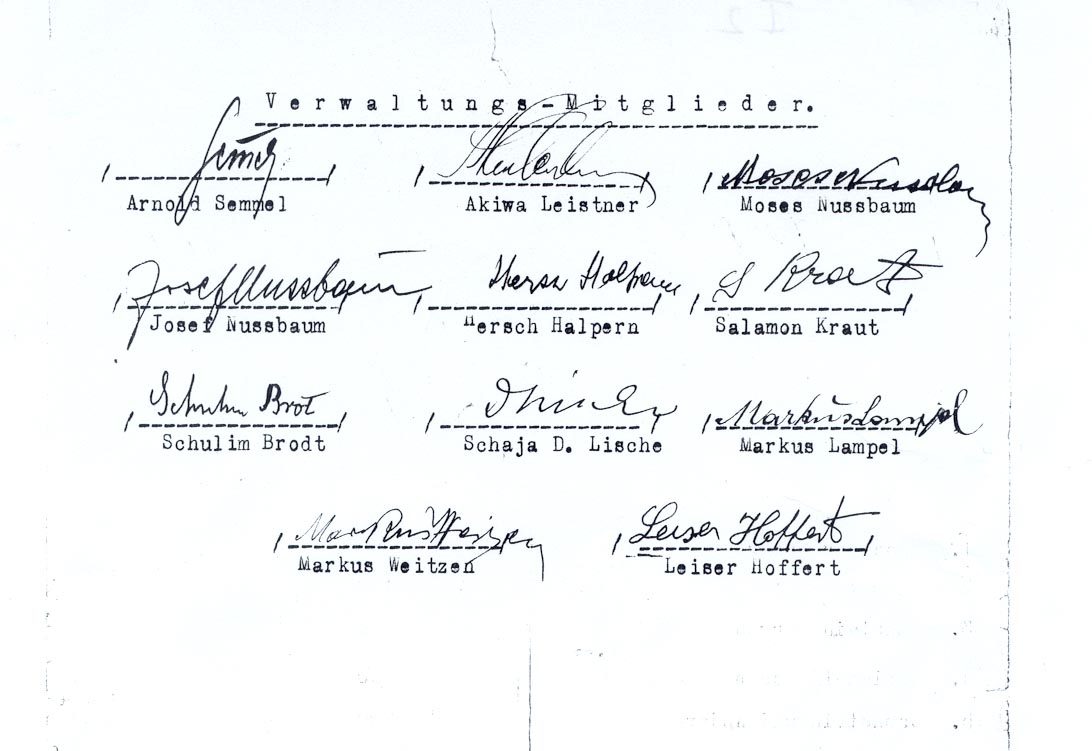 Verwaltungs-Mitglieder.
Arnold Sempel
Akiwa Leistner
Moses Nussbaum
Josef Nussbaum
Hersch Halpern
S Kraut
Josef Nussbaum
Hersch Halpern
Salamon Kraut
Schulim Brot
Markus Lampel
Schulim Brodt
Schaja D. Lische
Markus Lampel
Markus Weitzen
Leiser Hoffert
Markus Weitzen
Leiser Hoffert